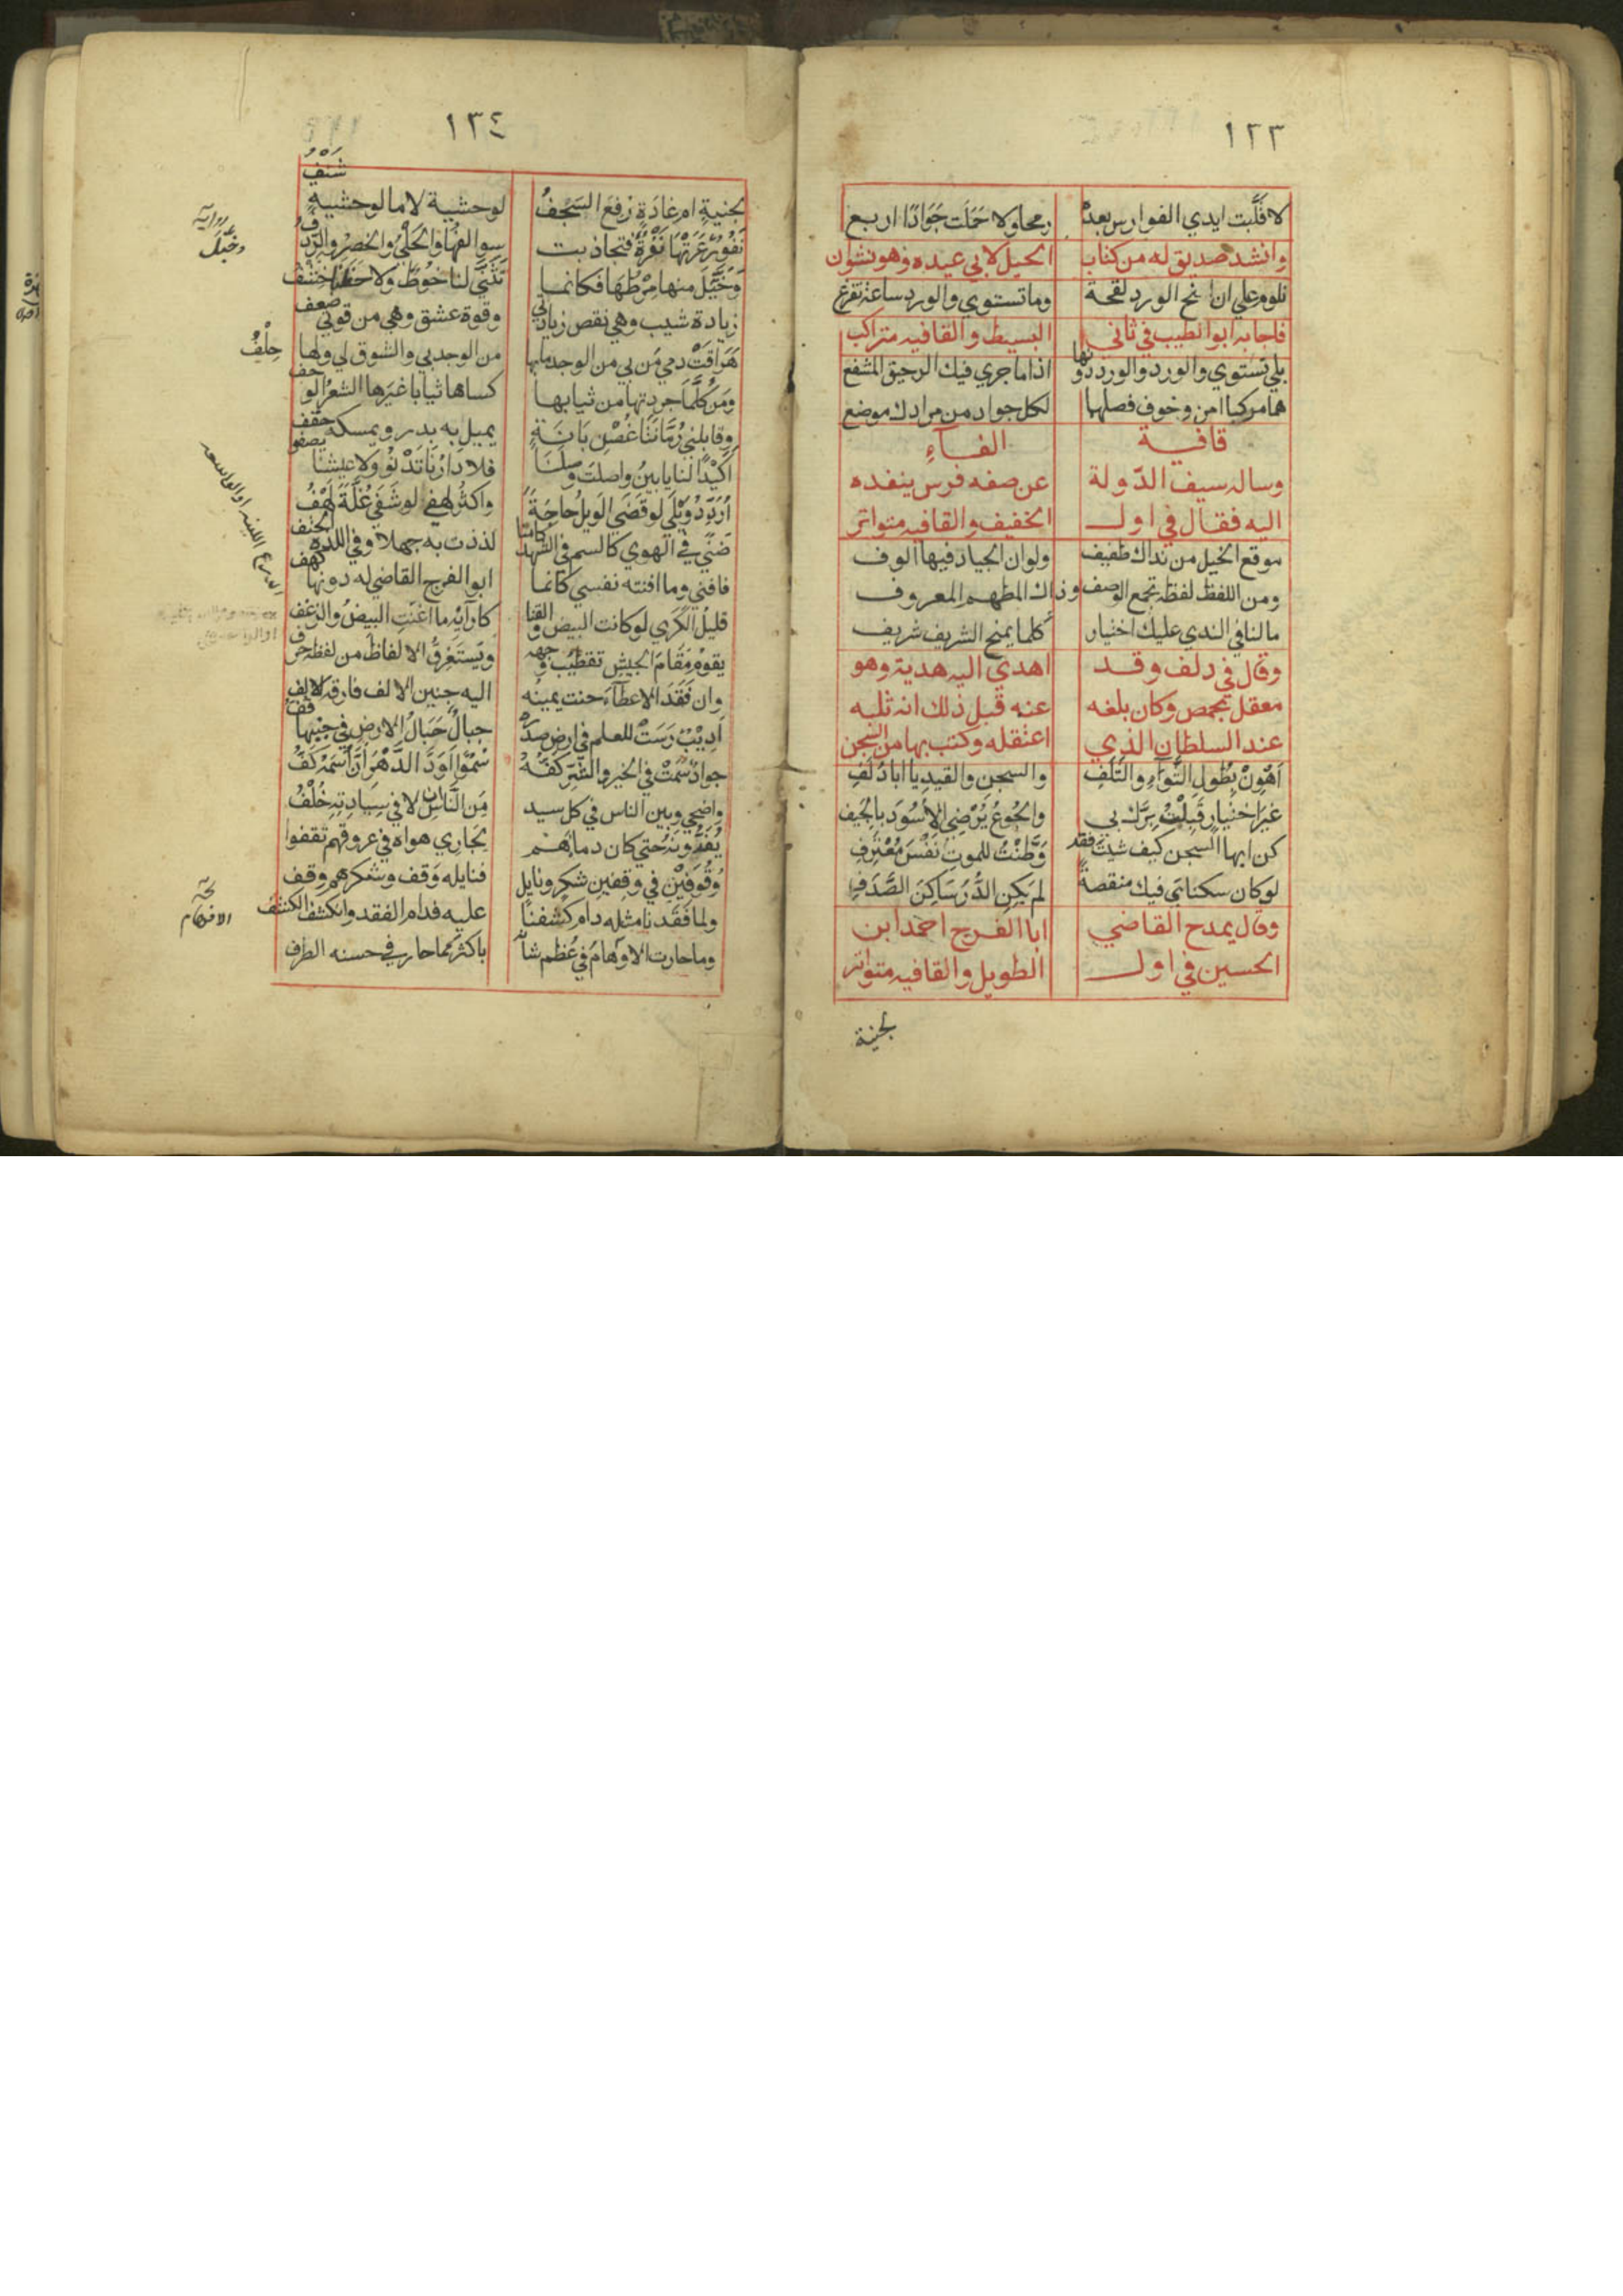 ١٣٣
لا قلَّبت ايدي الفوارس بعدهُ رمحا ولا حَمَلَت جَوَادًا اربع
وانشد صديق له من كتاب الخيل لابي عبيده وهو نشوان
تلوم علي ان انح الورد لقحة وما تستوي والورد ساعة تفزع
فاجابه ابو الطيب في ثاني البسيط والقافيه متراكب
بلي تستوي والورد والورد دونها اذا ما جري فيك الرحيق المشعع
هما مركبا امن وخوف فصلهما لكل جواد من مرادك موضع
قافية الفـاءِ
وساله سيف الدّولة عن صفه فرس ينفده
اليه فقال في اول الخفيف والقافيه متواتر
موقع الخيل من نداك طفيف ولو ان الجياد فيها الوف
ومن اللفظ لفظة تجمع الوصف وذاك المطهم المعروف
مالنا في الندي عليك اختيار كلما يمنح الشريف شريف
وقال في دلف وقد اهدي اليه هدية وهو
معقل بحمص وكان بلغه عنه قبل ذلك انه ثلبه
عند السلطان الذي اعتقله وكتب بها من السجن
اَهْوِنْ بِطُولِ الثَّوَآءِ والتَّلَفِ والسجنِ والقيدِ يا ابا دُلَفِ
غيرَ اختيارٍ قَبِلْتُ بِرَّك بي والجُوعُ يُرْضِي الاُسُودَ بالجِيَف
كن ايها السجن كيف شيتَ فقد وَطَّنْتُ للموتِ نَفْسَ مُعْتَرِفِ
لو كان سكناي فيك منقصةً لم يَكنِ الدُّرُ سَاكِنَ الصَّدَفِ
وقال يمدح القاضي ابا الفرج احمد ابن
الحسين في اول الطويل والقافيه متواتر
لجنية
١٣٤
لجنيةٍ ام غادَةٍ رُفعَ السَّجْفُ لوحشيةٍ لا ما لوحشيةٍ شَنْفُ
نَفُورٌ عَرَتْهَا نَفْرَةٌ فتجاذبت سوالفُهَا والحَلْيُ والخصْرُ والرِّدْفُ
وخَيَّلَ منها مِرْطُهَا فكانما تَثَنَّي لنا خُوطٌ ولاحَظَنَا خِشْف
زيادة شيب وهي نقص زيادتي وقوة عشق وهي من قوتي ضعف
هَرَاقَتْ دمي مَن بي من الوجد ما بها من الوجد بي والشوق لي ولها حِلْفُ
ومَن كُلَّمَا جردتها من ثيابها كساها ثيابا غيرَها الشعرُ الوحف
وقابلني رُمَّانَتَا غُصْنِ بَانَةٍ يميل به بدر ويمسكه حقف
اَكَيْدًا لنا يا بينُ واصلتَ وصلَنَا فلا دارُنَا تَدْنُو ولا عيشنا يصفو
اُرَدِّدُ وَيْلي لو قَضَي الويلُ حاجَةً واكثرُ لهفي لو شَفَي غُلَّةً لَهْفُ
ضَنًي في الهوي كالسم في الشهد كامنا لذذت به جهلا وفي اللذة الحتف
فافني وما افنته نفسي كانما ابو الفرج القاضي له دونها كهف
قليلُ الكَرَي لو كانت البيض والقنا كارآيه ما اغنتِ البيضُ والزغف
يقومُ مَقَامَ الجيش تقطيبُ وجهه ويَستغرِقُ الالفاظَ من لفظه حرف
وان فَقَدَ الاعطآءَ حنت يمينُه اليه حنين الالف فارقه الالف
اَديْبٌ رَسَتْ للعلم في ارضِ صدره جبالٌ جَبَالُ الارضِ في جنبها قُفُّ
جوادٌ سَمَتْ في الخير والشرّ كَفُّهُ سُمُوًّا اَوَدَّ الدَّهْرَ اَنَّ اسْمَهُ كَفُّ
واضحي وبين الناس في كل سيد مِنَ النَّاسِ الا في سِيَادِتِه خُلْفُ
يُفَدُّونَهُ حتي كان دماءَهُم لجاري هواه في عروقهم تقفوا
وُقُوفَيْنِ في وقفينِ شكرٍ ونايلٍ فنايله وَقف وشكرهم وقف
ولما فقدنا مثله دام كشفنا عليه فدام الفقد وانكشف الكشف
وما حارت الاَوهامُ في عُظمِ شانه باكثر مما حار في حسنه الطرف
رواية
وخَبَّلَ
حِلْفُ
الافهام